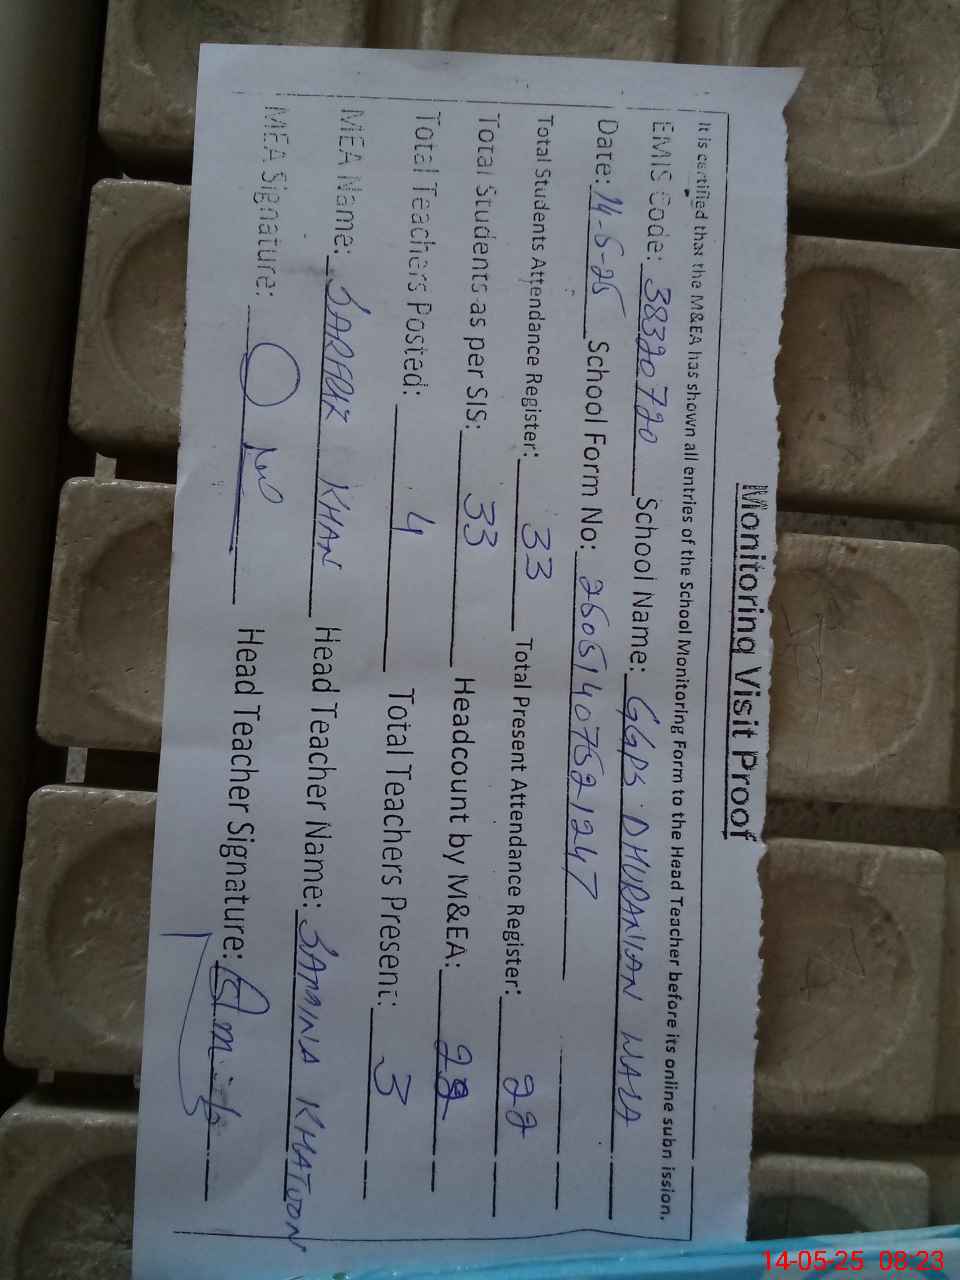 Monitoring Visit Proof
It is certified that the M&EA has shown all entries of the School Monitoring Form to the Head Teacher before its online submission.
EMIS Code: 38320720 School Name: GGPS DHURANIAN WALA
Date: 14-5-25 School Form No: 26051407521247
Total Students Attendance Register: 33 Total Present Attendance Register: 22
Total Students as per SIS: 33 Headcount by M&EA: 22
Total Teachers Posted: 4 Total Teachers Present: 3
MEA Name: KHAN Head Teacher Name: KHATOON
MEA Signature: Head Teacher Signature:
14-05-25 08:23